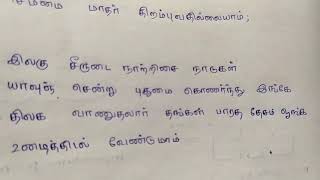 செம்மை மாதர் திறம்புவதில்லையாம்;
இலகு சீருடை நாற்றிசை நாடுகள்
யாவுஞ் சென்று புதுமை கொணர்ந்து இங்கே
திலக வாணுதலார் தங்கள் பாரத தேசம் ஓங்க
உழைத்திடல் வேண்டுமாம்